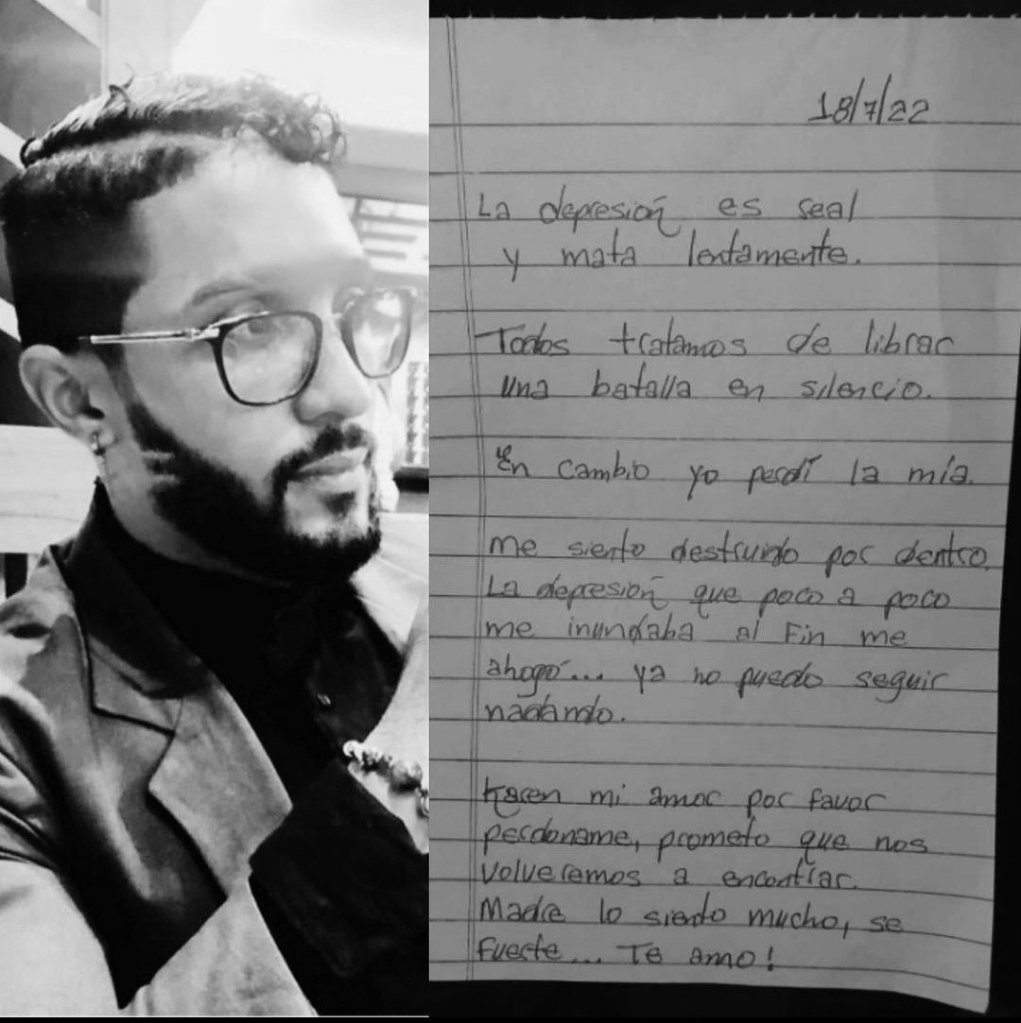 18/7/22
La depresión es real
y mata lentamente.
Todos tratamos de librar
una batalla en silencio.
En cambio yo perdí la mía.
me siento destruido por dentro.
La depresión que poco a poco
me inundaba al Fin me
ahogó... ya no puedo seguir
nadando.
Karen mi amor por favor
perdoname, prometo que nos
volveremos a encontrar.
Madre lo siento mucho, se
fuerte... Te amo!